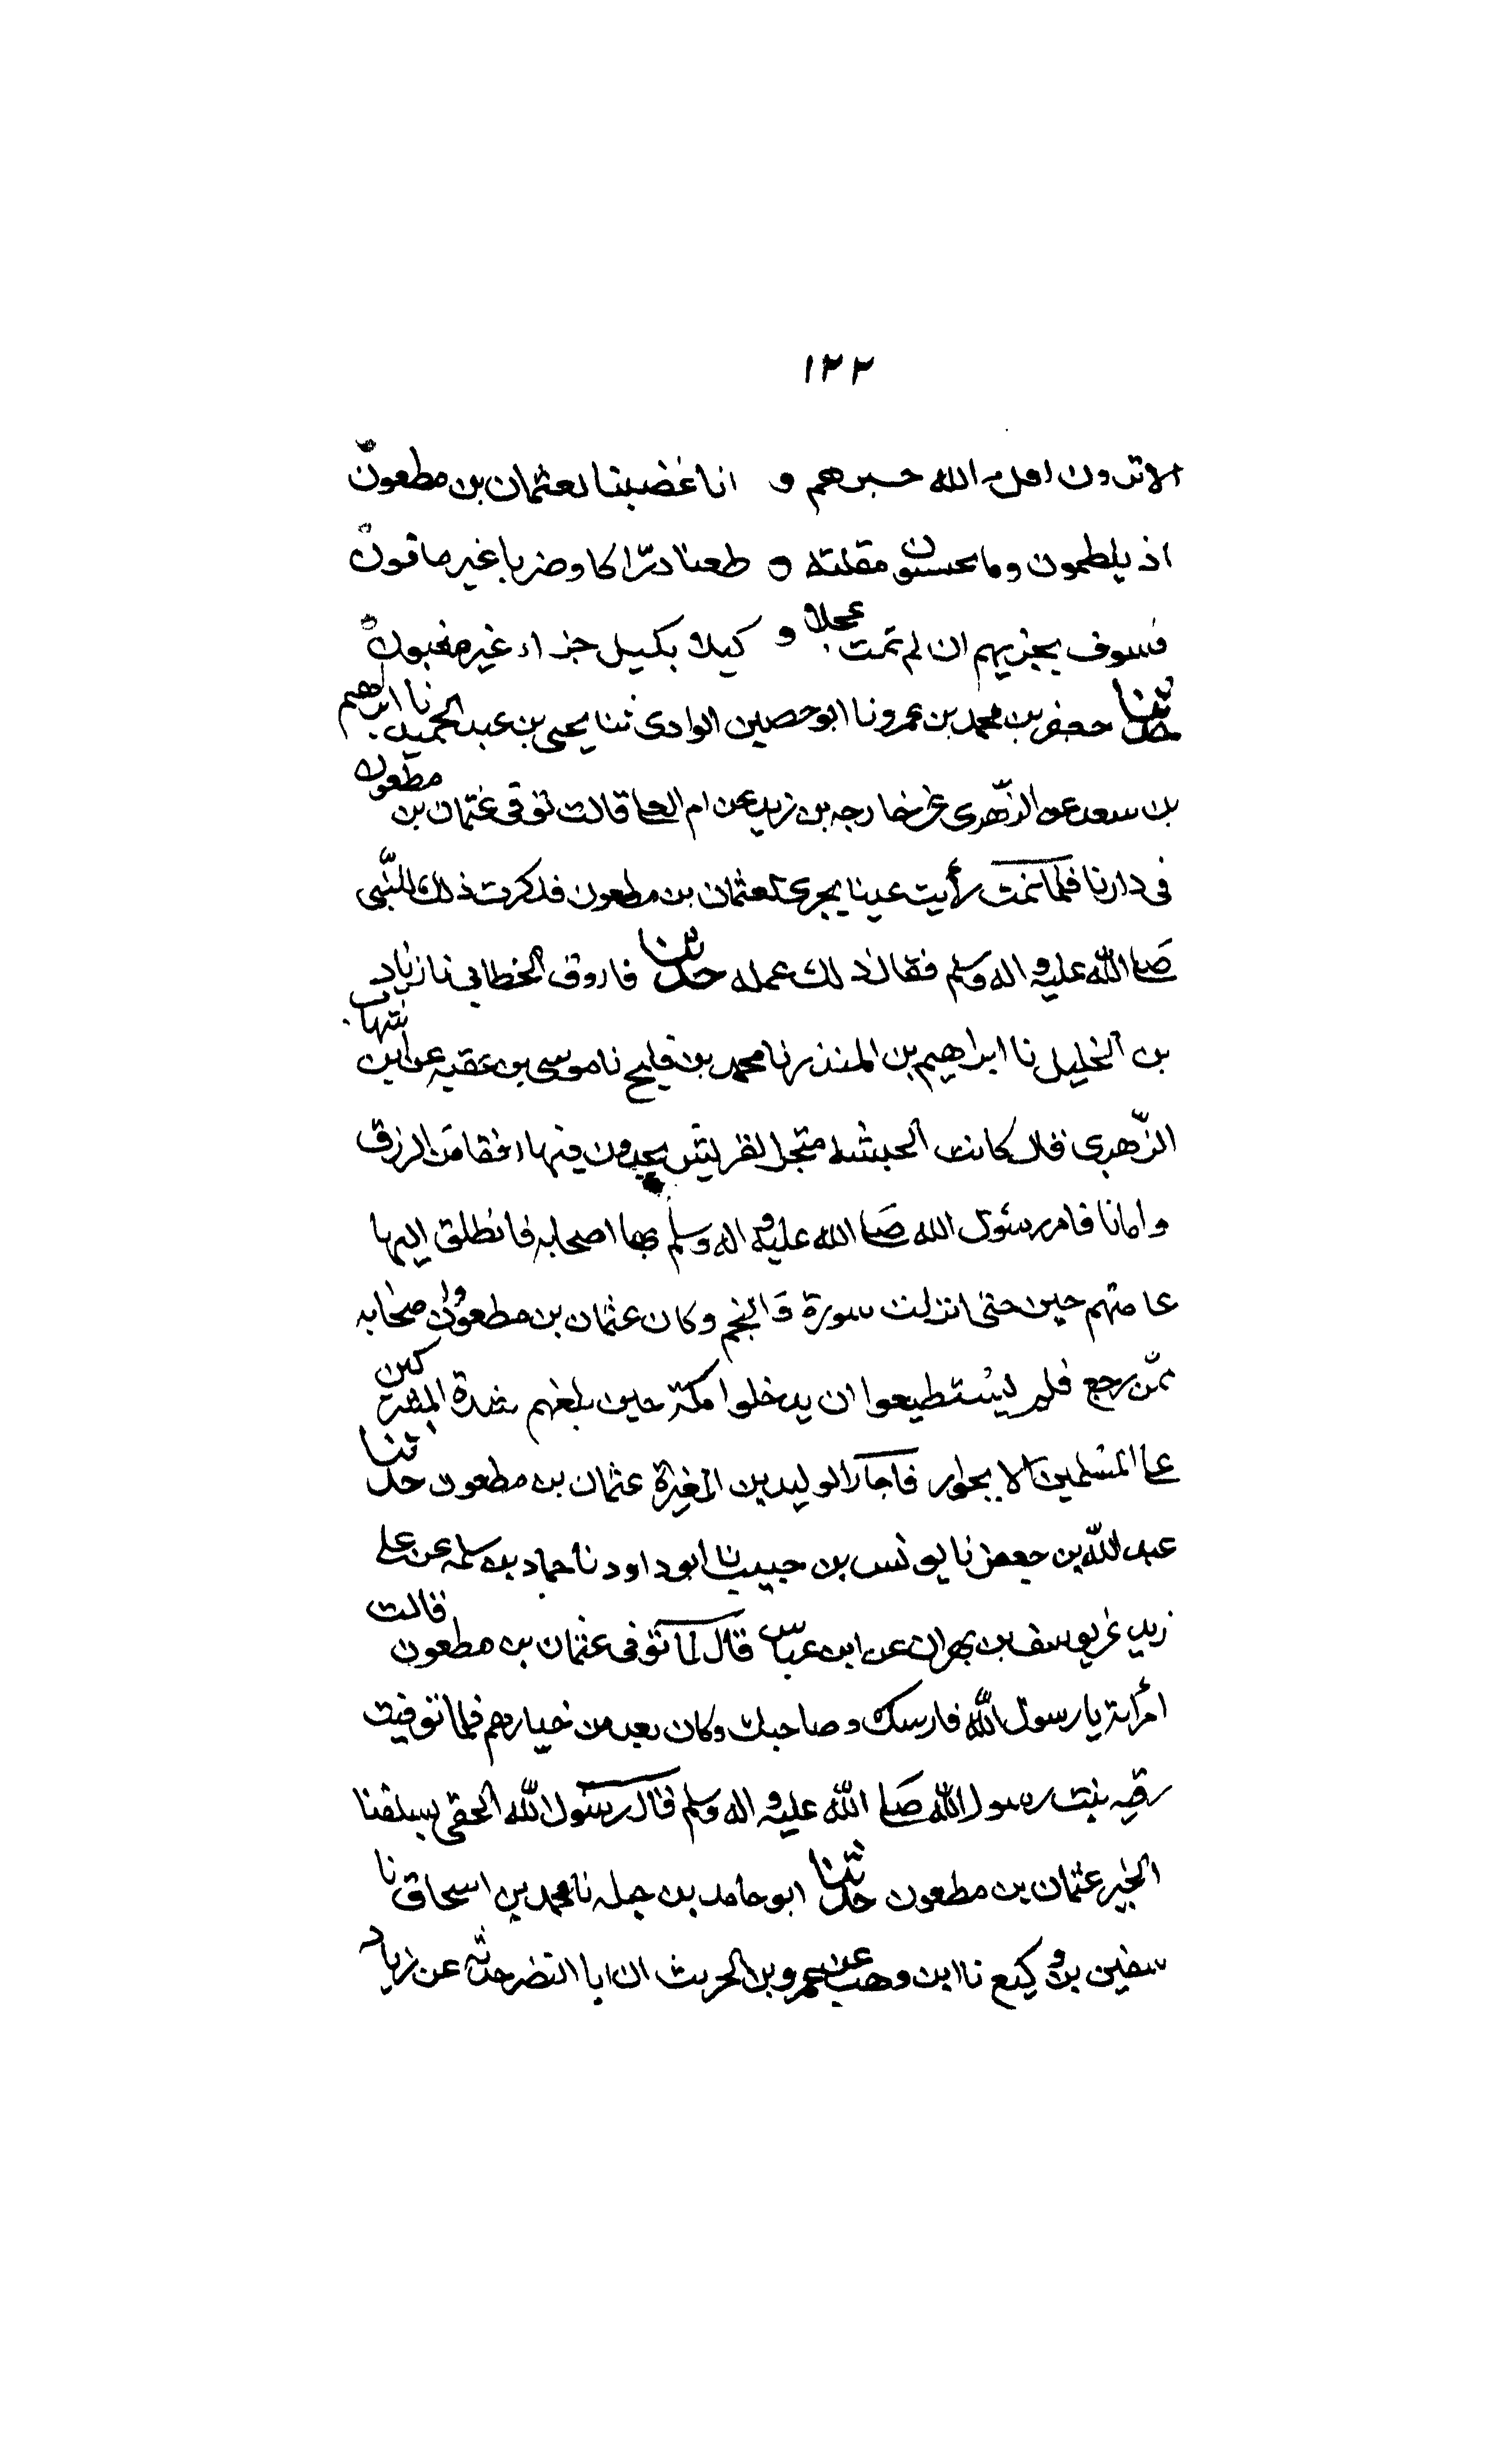 ١٢٢
الا ترون اقل الله خيرهم و انا غضبنا لعثمان بن مطعون
اذ يلطمون وما يخشون مقلته ه طعنا درّاكا وضربا غير مافون
فسوف يجزيهم ان لم تمت عجلا و كيلا بكيل جزاء غير مغبون
حدثنا جعفر بن محمد بن عمرو نا ابو حصين الوادى ثنا يحيى بن عبد الحميد نا ابرهيم
بن سعد عن الزّهرى عن خارجه بن زيد عن ام العلا قالت توفى عثمان بن مطعون
فى دارنا فلما نمت رأيت عينا يجرى لعثمان بن مطعون فذكرت ذلك للنّبى
صَلى اللّٰه عليه و اله وسلم فقال ذلك عمله حدثنا فاروق الخطابى نا زياد
بن الخليل نا ابراهيم بن المنذر نا محمد بن فليح نا موسى بن عقبه عن ابن شهاب
الزّهرى قال كانت الحبشه متجرا لقريش يجدون فيها رفقا من الرزق
وامانا فامر رسول الله صَلى الله عليه و اله وسلم بها اصحابه فانطلق اليها
عامتهم حين حتى انزلت سورة وَالنجم وكان عثمان بن مطعون واصحابه
ممّن رجع فلم يستطيعوا ان يدخلوا مكة حين بلغهم شدة المشركين
على المسلمين الا بجوار فاجار الوليد بن المغيرة عثمان بن مطعون حدثنا
عبد اللّٰه بن جعفر نا يونس بن حبيب نا ابو داود نا حماد بن سلمه عن على
زيد عن يوسف بن مهران عن ابن عباس قال لما توفى عثمان بن مطعون قالت
امرأته يا رسول اللّٰه فارسك وصاحبك وكان بعد من خيارهم فلما توفيت
رقيه بنت رسول اللّٰه صَلى اللّٰه عليه و اله وسلم قال رسول اللّٰه الحقى بسلفنا
الخير عثمان بن مطعون حدثنا ابو حامد بن جبله نا محمد بن اسحاق نا
سفين بن وكيع نا ابن وهب عن عمرو بن الحرث ان ابا النضر حدثه عن زياد